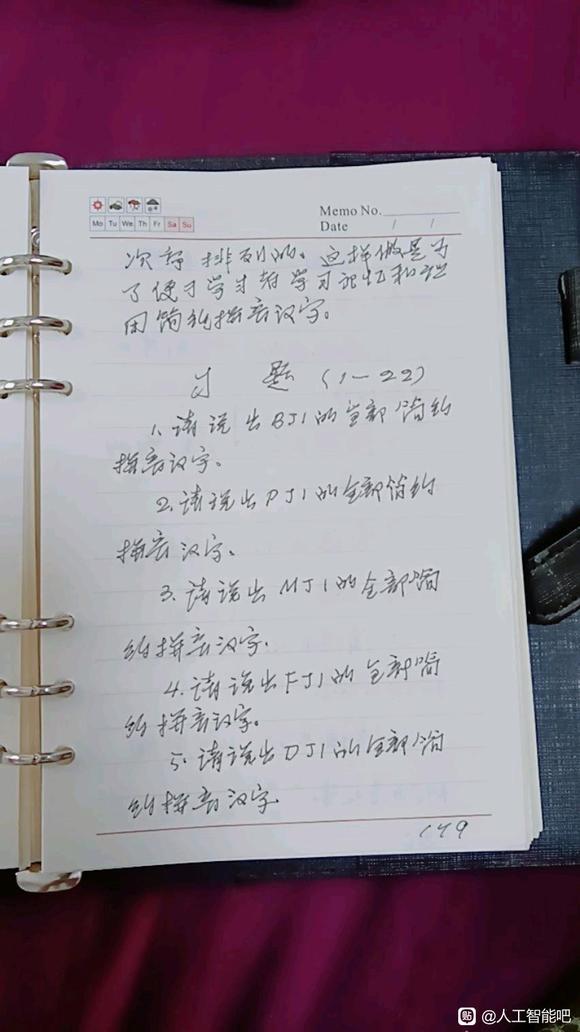 Memo No.
Mo Tu We Th Fr Sa Su
Date / /
次序排列的。这样做是为
了便于学习者学习记忆和使
用简约拼音汉字。
习 题 (1—22)
1. 请说出BJ1的全部简约
拼音汉字。
2. 请说出PJ1的全部简约
拼音汉字。
3. 请说出MJ1的全部简
约拼音汉字.
4. 请说出FJ1的全部简
约拼音汉字。
5. 请说出DJ1的全部简
约拼音汉字.
149
贴 @人工智能吧